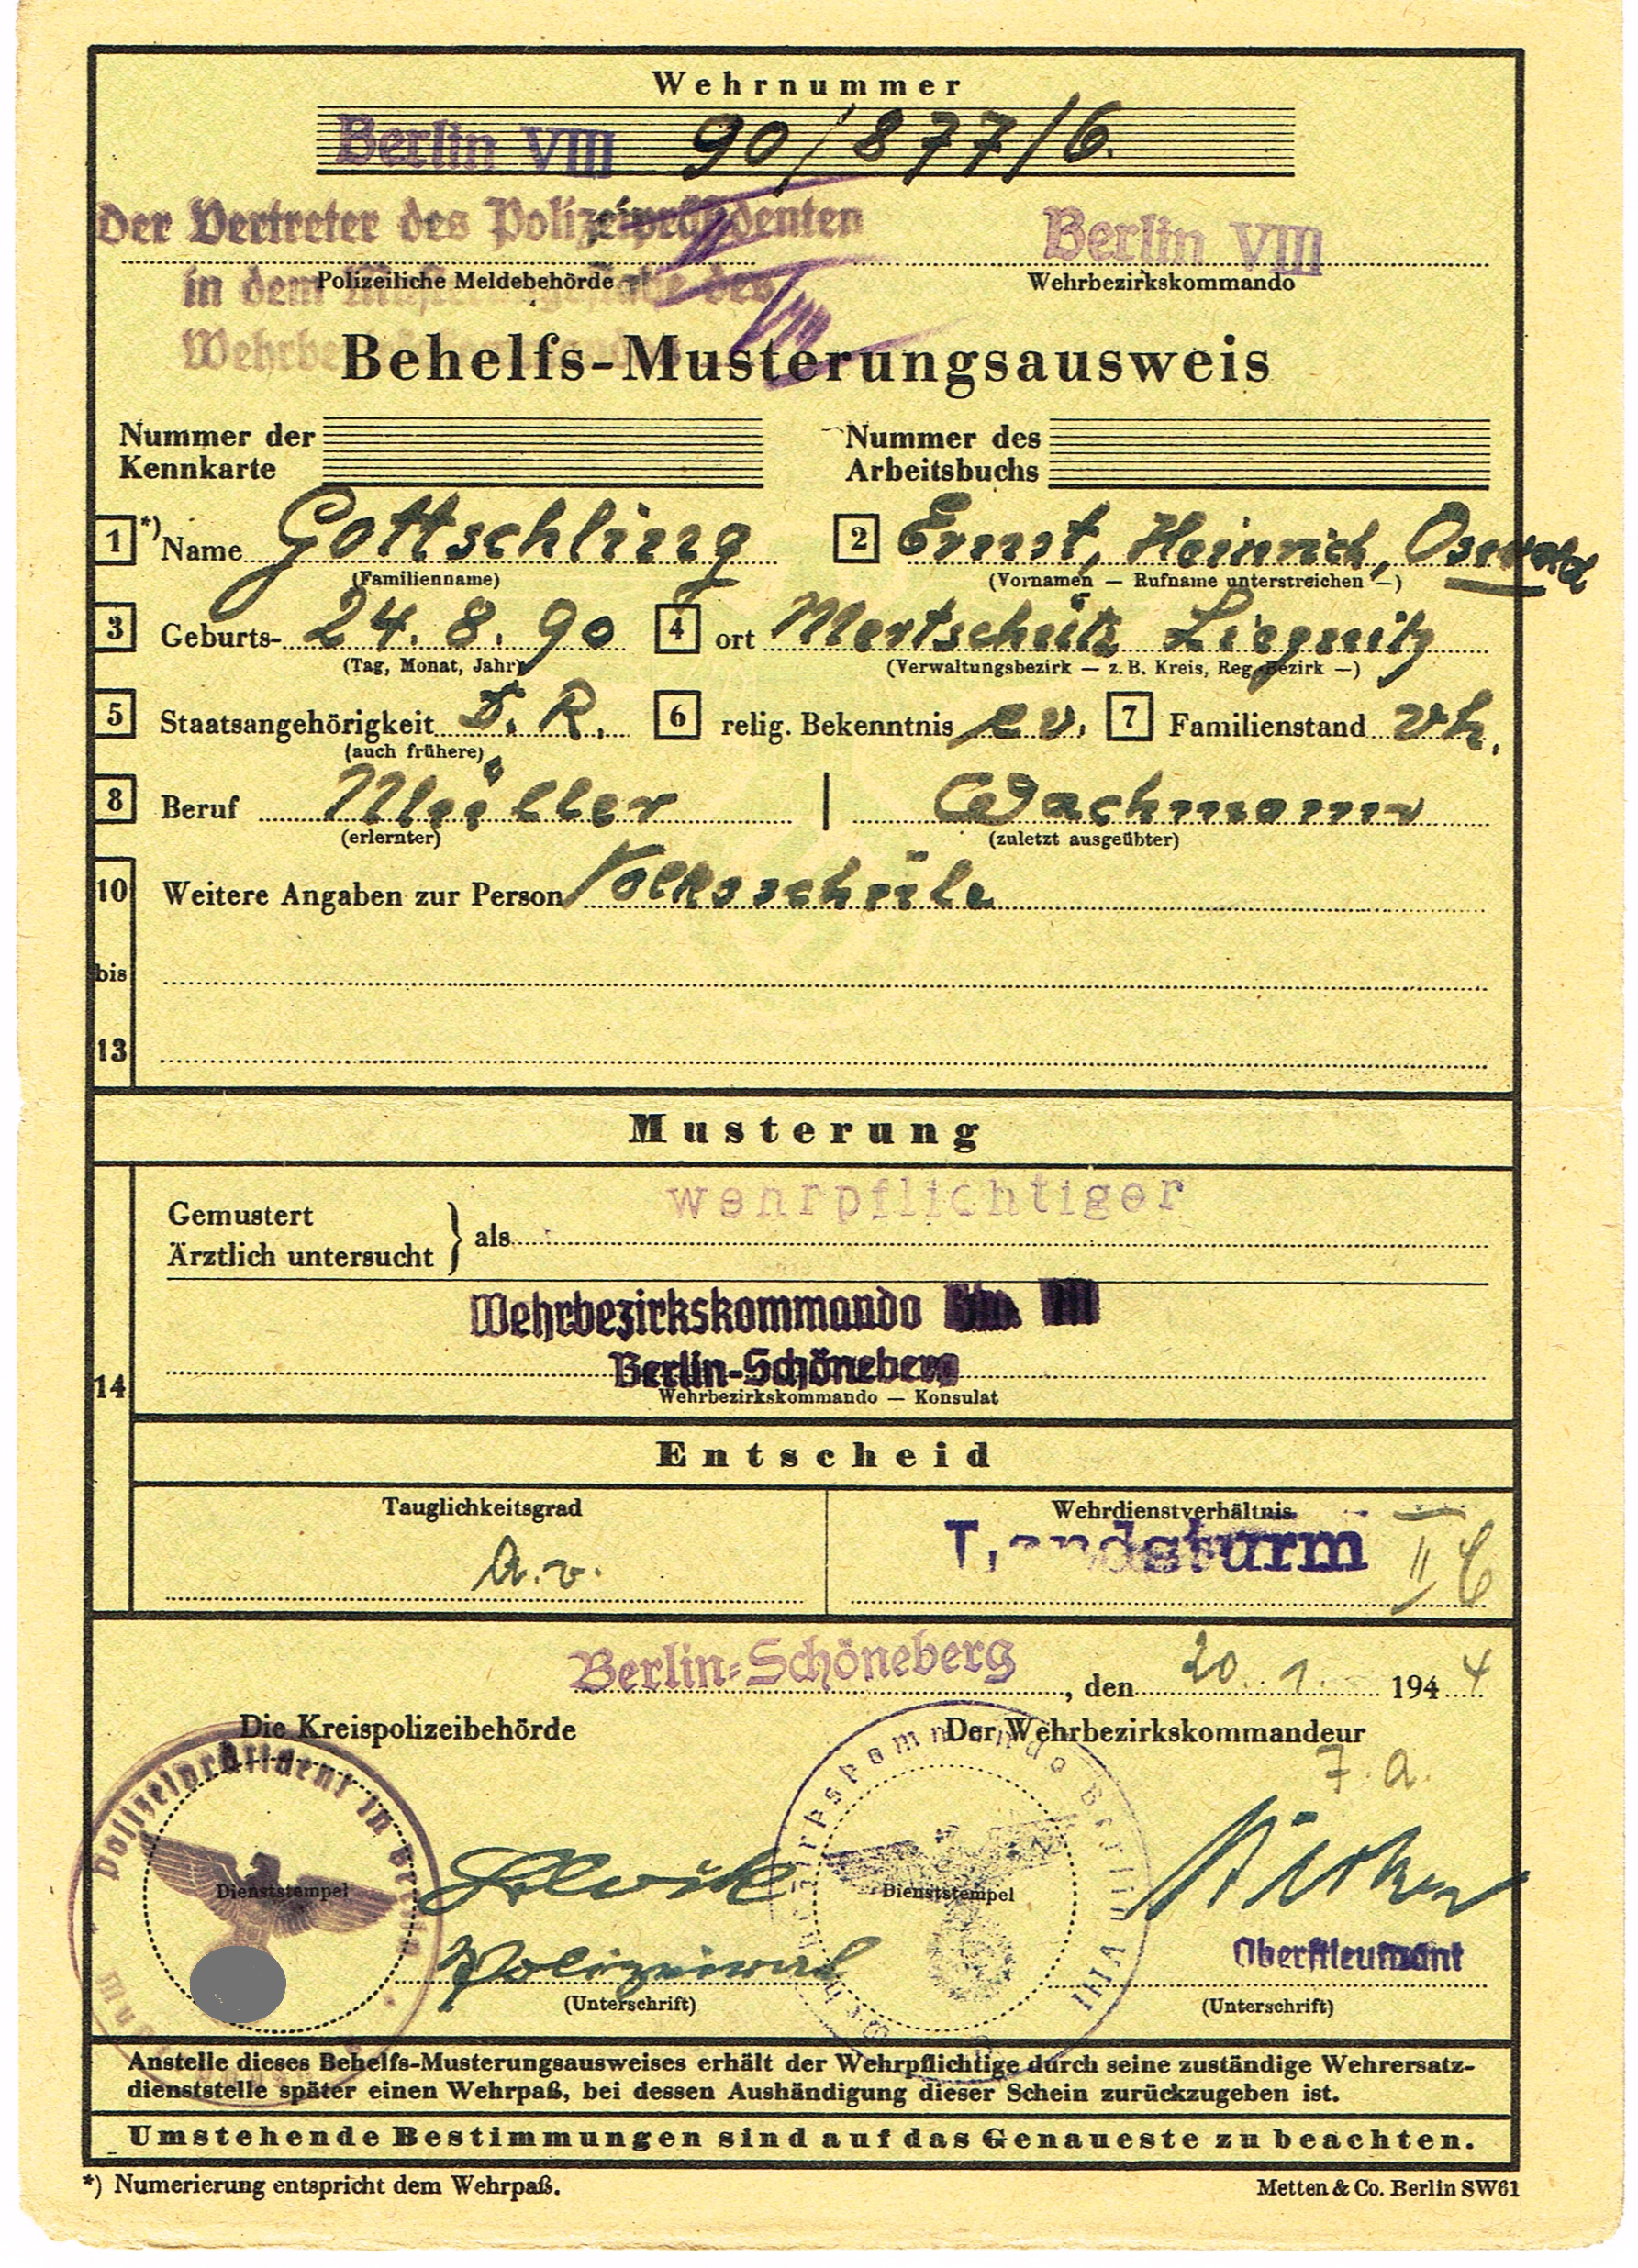 Wehrnummer
Berlin VIII 90/877/6.
Der Vertreter des Polizeipräsidenten
Berlin VIII
Polizeiliche Meldebehörde
Wehrbezirkskommando
in dem des
Behelfs-Musterungsausweis
Nummer der Kennkarte
Nummer des Arbeitsbuchs
1 *) Name Gottschling
(Familienname)
2 Ernst, Heinrich, Oswald
(Vornamen — Rufname unterstreichen —)
3 Geburts- 24. 8. 90
(Tag, Monat, Jahr)
4 ort Mertschütz Liegnitz
(Verwaltungsbezirk — z. B. Kreis, Reg.-Bezirk —)
5 Staatsangehörigkeit D. R.
(auch frühere)
6 relig. Bekenntnis ev.
7 Familienstand vh.
8 Beruf Müller | Wachmann
(erlernter) (zuletzt ausgeübter)
10 Weitere Angaben zur Person Volksschule
bis
13
Musterung
wehrpflichtiger
Gemustert
Ärztlich untersucht } als
Wehrbezirkskommando
Berlin-Schöneberg
Wehrbezirkskommando — Konsulat
14
Entscheid
Tauglichkeitsgrad
Wehrdienstverhältnis
a.v.
Landsturm II
Berlin-Schöneberg, den 20. 1. 1944
Die Kreispolizeibehörde
Der Wehrbezirkskommandeur
Polizeipräsident in Berlin
Dienststempel
Dienststempel
Berlin VIII
Oberstleutnant
(Unterschrift)
(Unterschrift)
Anstelle dieses Behelfs-Musterungsausweises erhält der Wehrpflichtige durch seine zuständige Wehrersatz-
dienststelle später einen Wehrpaß, bei dessen Aushändigung dieser Schein zurückzugeben ist.
Umstehende Bestimmungen sind auf das Genaueste zu beachten.
*) Numerierung entspricht dem Wehrpaß.
Metten & Co. Berlin SW61